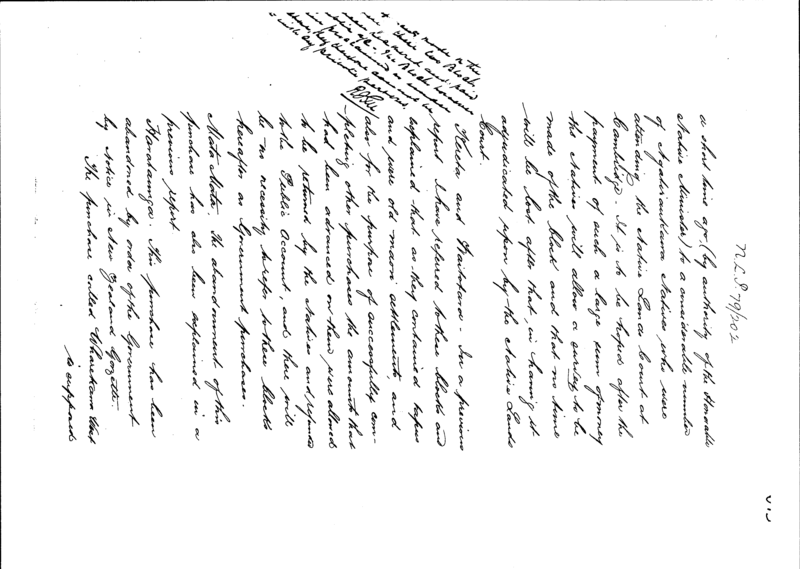 N.L.P. 79/202
a short time ago (by authority of the Honorable
Native Minister) to a considerable number
of Ngatiraukawa Natives who were
attending the Native Lands Court at
Cambridge. It is to be hoped after the
payment of such a large sum of money
the Natives will allow a survey to be
made of the block and that no time
will be lost after that, in having it
adjudicated upon by the Native Lands
Court.
and Waitotara - In a previous
report I have referred to these blocks and
explained that as they contained
and were old maori settlements, and
also for the purpose of successfully com-
pleting other purchases the amounts that
had been advanced on them were allowed
to be returned by the Natives and refunded
to the Public Account, and there will
be no necessity to refer to these blocks
hereafter as Government purchases.
Mata Mata. The abandonment of this
purchase has also been explained in a
previous report
This purchase has been
abandoned by order of the Government
by notice in New Zealand Gazette.
The purchase called West
is supposed
these two Blocks
and paid
The Block however
proclaimed
they therefore cannot
private